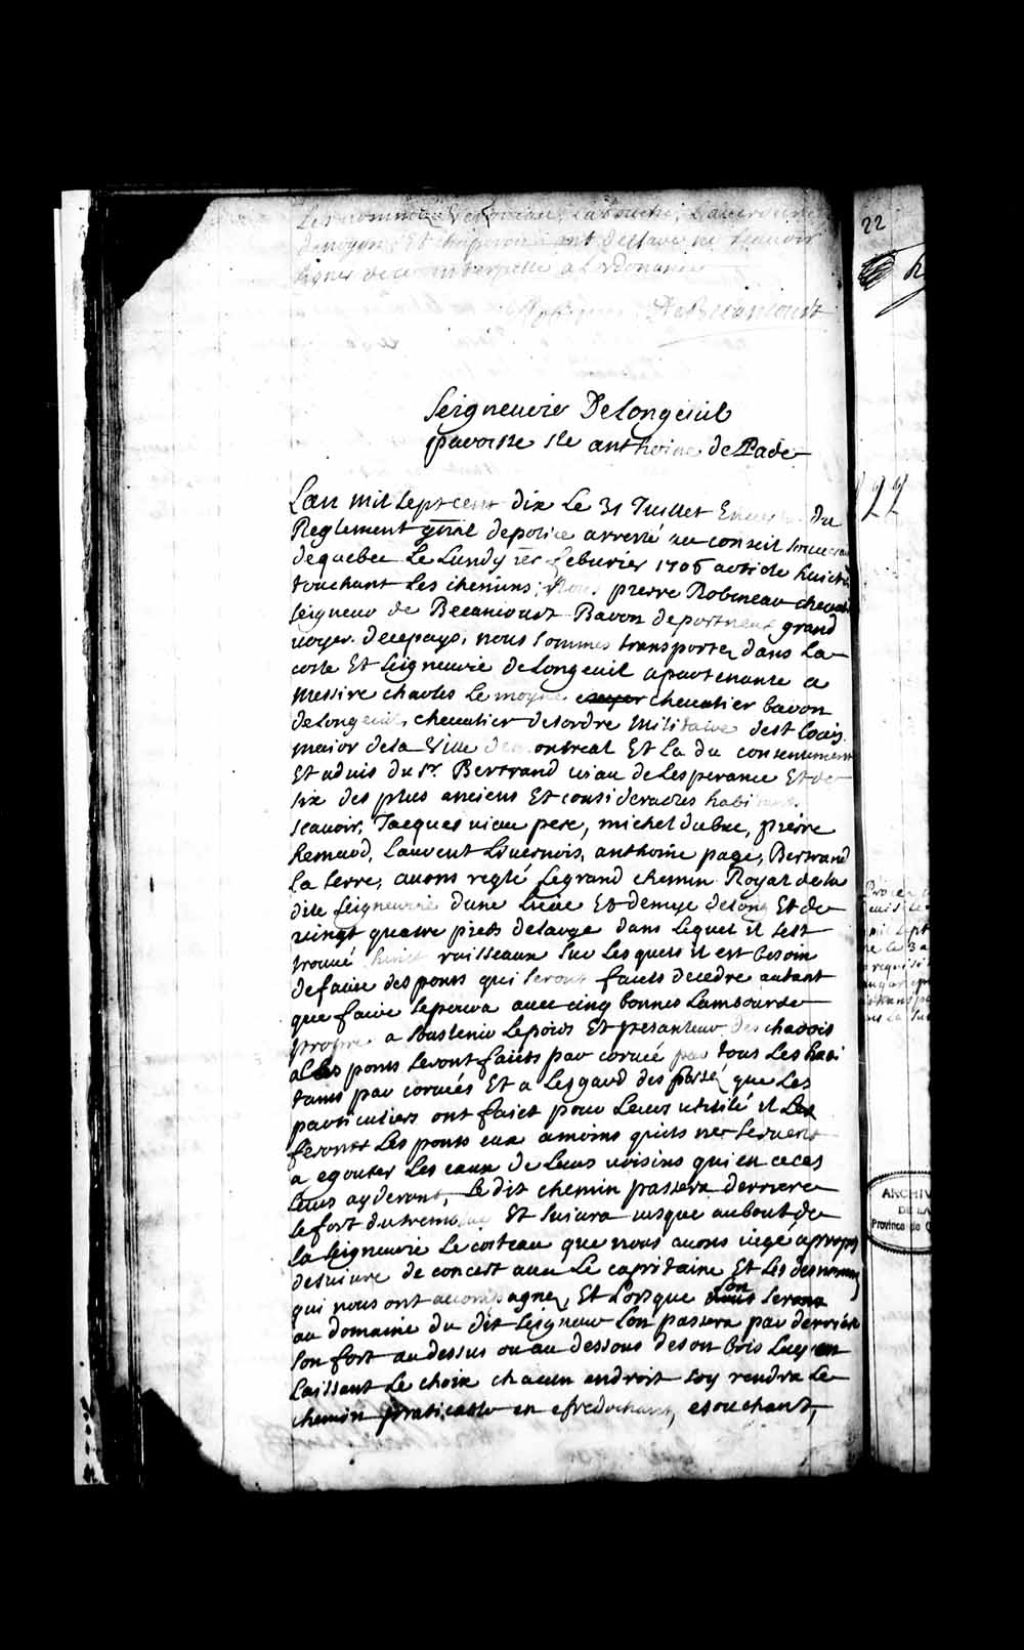 Les nommez
et chaperon ont desclaré ne scauoir
signer de ce interpellé a Lordonance
DeBecancourt
22
Seigneurie DeLongeüil
paroisse Ste anthoine de Pade
122
Lan mil sept cent dix Le 31 Juillet En du
Reglement gñral depolice arresté au conseil
dequebec Le Lundy 1er feburier 1706 article huict
touchant Les chemins, Nous pierre Robineau
seigneur de Becancourt Baron deportneuf grand
uoyer decepays, nous sommes transportez dans La
coste Et seigneurie deLongeuil apartenante a
Messire charles Le moyne chevalier baron
deLongeuil, cheualier delordre Militaire dest Louis
maior dela Ville de montreal Et La du consentement
Et aduis du sr. Bertrand uiau deLesperance Et de
six des plus anciens Et considerables habitans
scauoir, Jacques uiau pere, michel dubuc, pierre
hemard, Laurent Liuernois, anthoine page, Bertrand
La serre, auons reglé Legrand chemin Royal de la
dite seigneurie dune Lieüe Et demye delong Et de
uingt quatre pieds delarge dans Lequel il sest
trouué ruisseaux sur Les quels il est besoin
defaire des ponts qui seront faicts decedre autant
que faire sepoura auec cinq bonnes Lambourde
propre a soustenir Lepoids Et pesanteur des
ponts seront faicts par coruée par tous Les habi
tans par coruées Et a Lesgard des fossez que Les
particuliers ont faict pour Leurs utilité il
feront Les ponts eux amoins quils ne seruent
a egouter Les eaux de Leurs uoisins qui en ce cas
Leurs ayderont, Le dit chemin passera derriere
Le fort Et suiura jusque aubout de
La seigneurie Le costeau que nous auons iugé apropos
desuiure de concert auec Le capitaine Et Les
qui nous ont accompagnez, Et Lorsque Lon sera
au domaine du dit seigneur Lon passera par derriere
son fort audessus ou au dessous deson bois Luy en
Laissant Le choix chacun endroit soy rendra Le
chemin praticable en efredochant, esouchant,
ARCHIV
DE LA
Province de